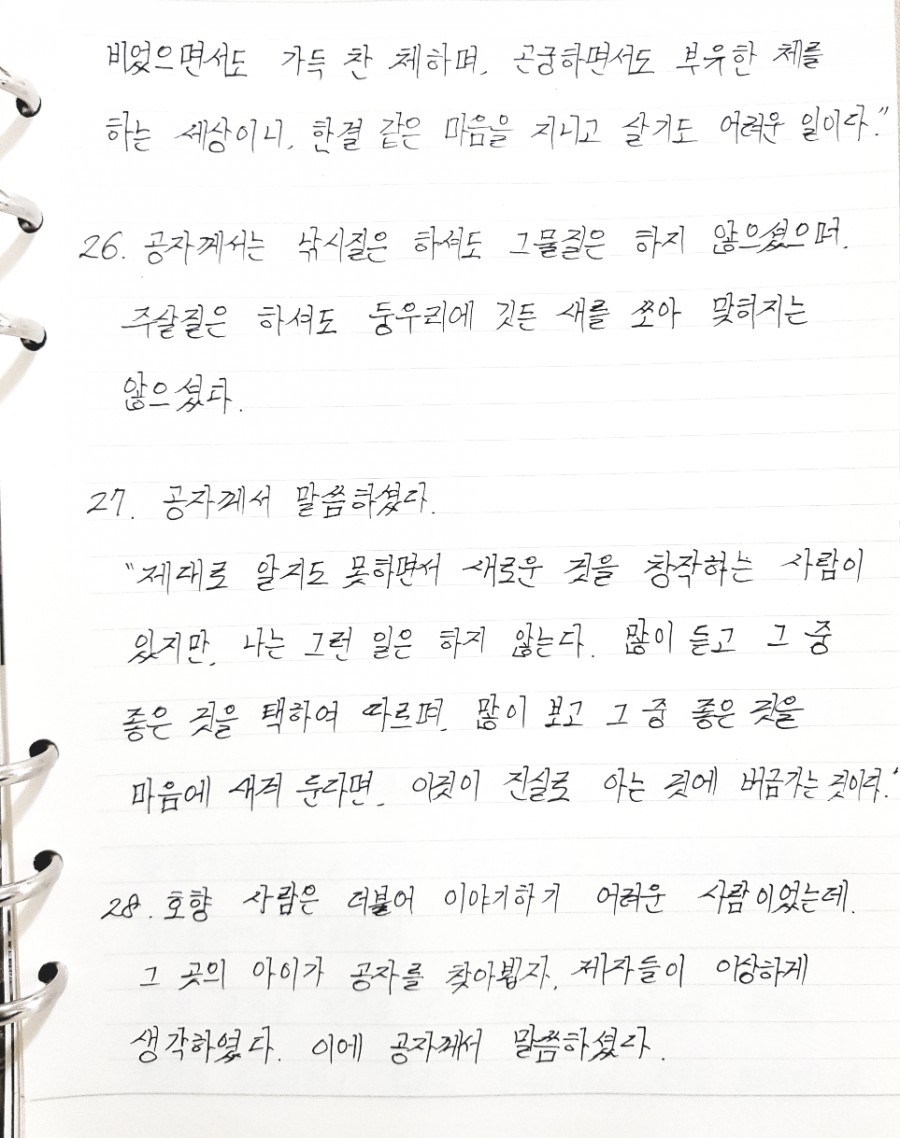 비었으면서도 가득 찬 체하며, 곤궁하면서도 부유한 체를
하는 세상이니, 한결 같은 마음을 지니고 살기도 어려운 일이다."
26. 공자께서는 낚시질은 하셔도 그물질은 하지 않으셨으며,
주살질은 하셔도 둥우리에 깃든 새를 쏘아 맞히지는
않으셨다.
27. 공자께서 말씀하셨다.
"제대로 알지도 못하면서 새로운 것을 창작하는 사람이
있지만, 나는 그런 일은 하지 않는다. 많이 듣고 그 중
좋은 것을 택하여 따르며, 많이 보고 그 중 좋은 것을
마음에 새겨 둔다면, 이것이 진실로 아는 것에 버금가는 것이다."
28. 호향 사람은 더불어 이야기하기 어려운 사람이었는데,
그 곳의 아이가 공자를 찾아뵙자, 제자들이 이상하게
생각하였다. 이에 공자께서 말씀하셨다.